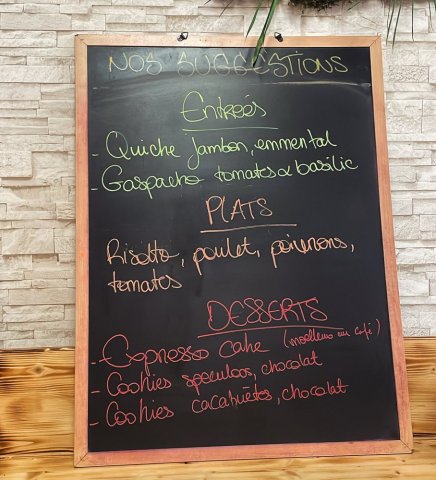 NOS SUGGESTIONS
Entrées
- Quiche jambon, emmental
- Gaspacho tomates & basilic
PLATS
Risotto, poulet, poivrons,
tomates
DESSERTS
- Expresso cake (moelleux au café)
- Cookies speculoos, chocolat
- Cookies cacahuètes, chocolat